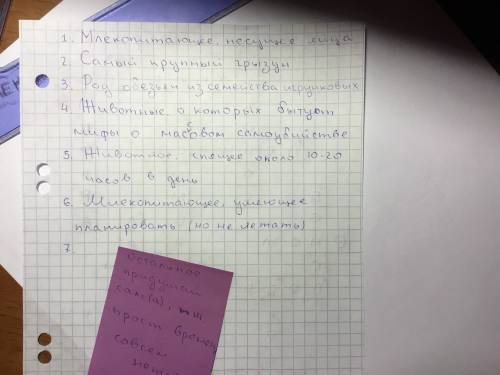 1. Млекопитающее, несущее яйца
2. Самый крупный грызун
3. Род обезьян из семейства игрунковых
4. Животные, о которых бытуют
мифы о массовом самоубийстве
5. Животное, спящее около 10-20
часов в день
6. Млекопитающее, умеющее
планировать (но не летать)
7.
Остальное
придумай
сам(а),
прост времени
совсем